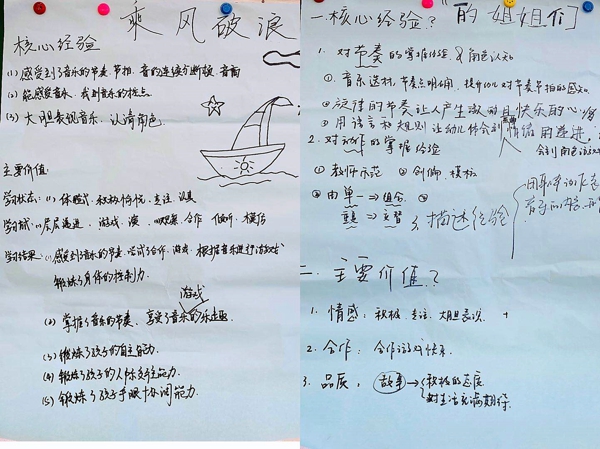 乘风破浪
核心经验
(1) 感受到了音乐的节奏、节拍、音的连续与断
(2) 能感受音乐、找到音乐的
(3) 大胆表现音乐、认清角色。
主要价值:
学习状态: (1) 体验式、积极愉悦、专注、认真
层层递进、游戏、观察、合作、倾听、模仿
学习结果: (1) 感受到了音乐的节奏、尝试了合作、游戏、根据音乐进行游戏
锻炼了身体的控制力。
游戏
(2) 掌握了音乐的节奏、享受了音乐的乐趣
(3) 锻炼了孩子的自主能力。
(4) 锻炼了孩子的人际交往能力
(5) 锻炼了孩子手眼协调能力。
一.核心经验? "的姐姐们
1. 对节奏的掌握经验、角色认知
① 音乐选材,节奏点明确,提升幼儿对节奏节拍的感知
② 旋律的节奏让人产生激动且快乐的心情
③ 用语言和规则让幼儿体会到情绪用递进,
2. 对动作的掌握经验
① 教师示范 ② 创编、模仿
③ 由单一→组合
重叠→交替
描述经验
二. 主要价值?
1. 情感: 积极、专注、大胆表现、+
2. 合作: 合作游戏快乐.
3. 品质: 故事→积极的态度
对生活充满期待